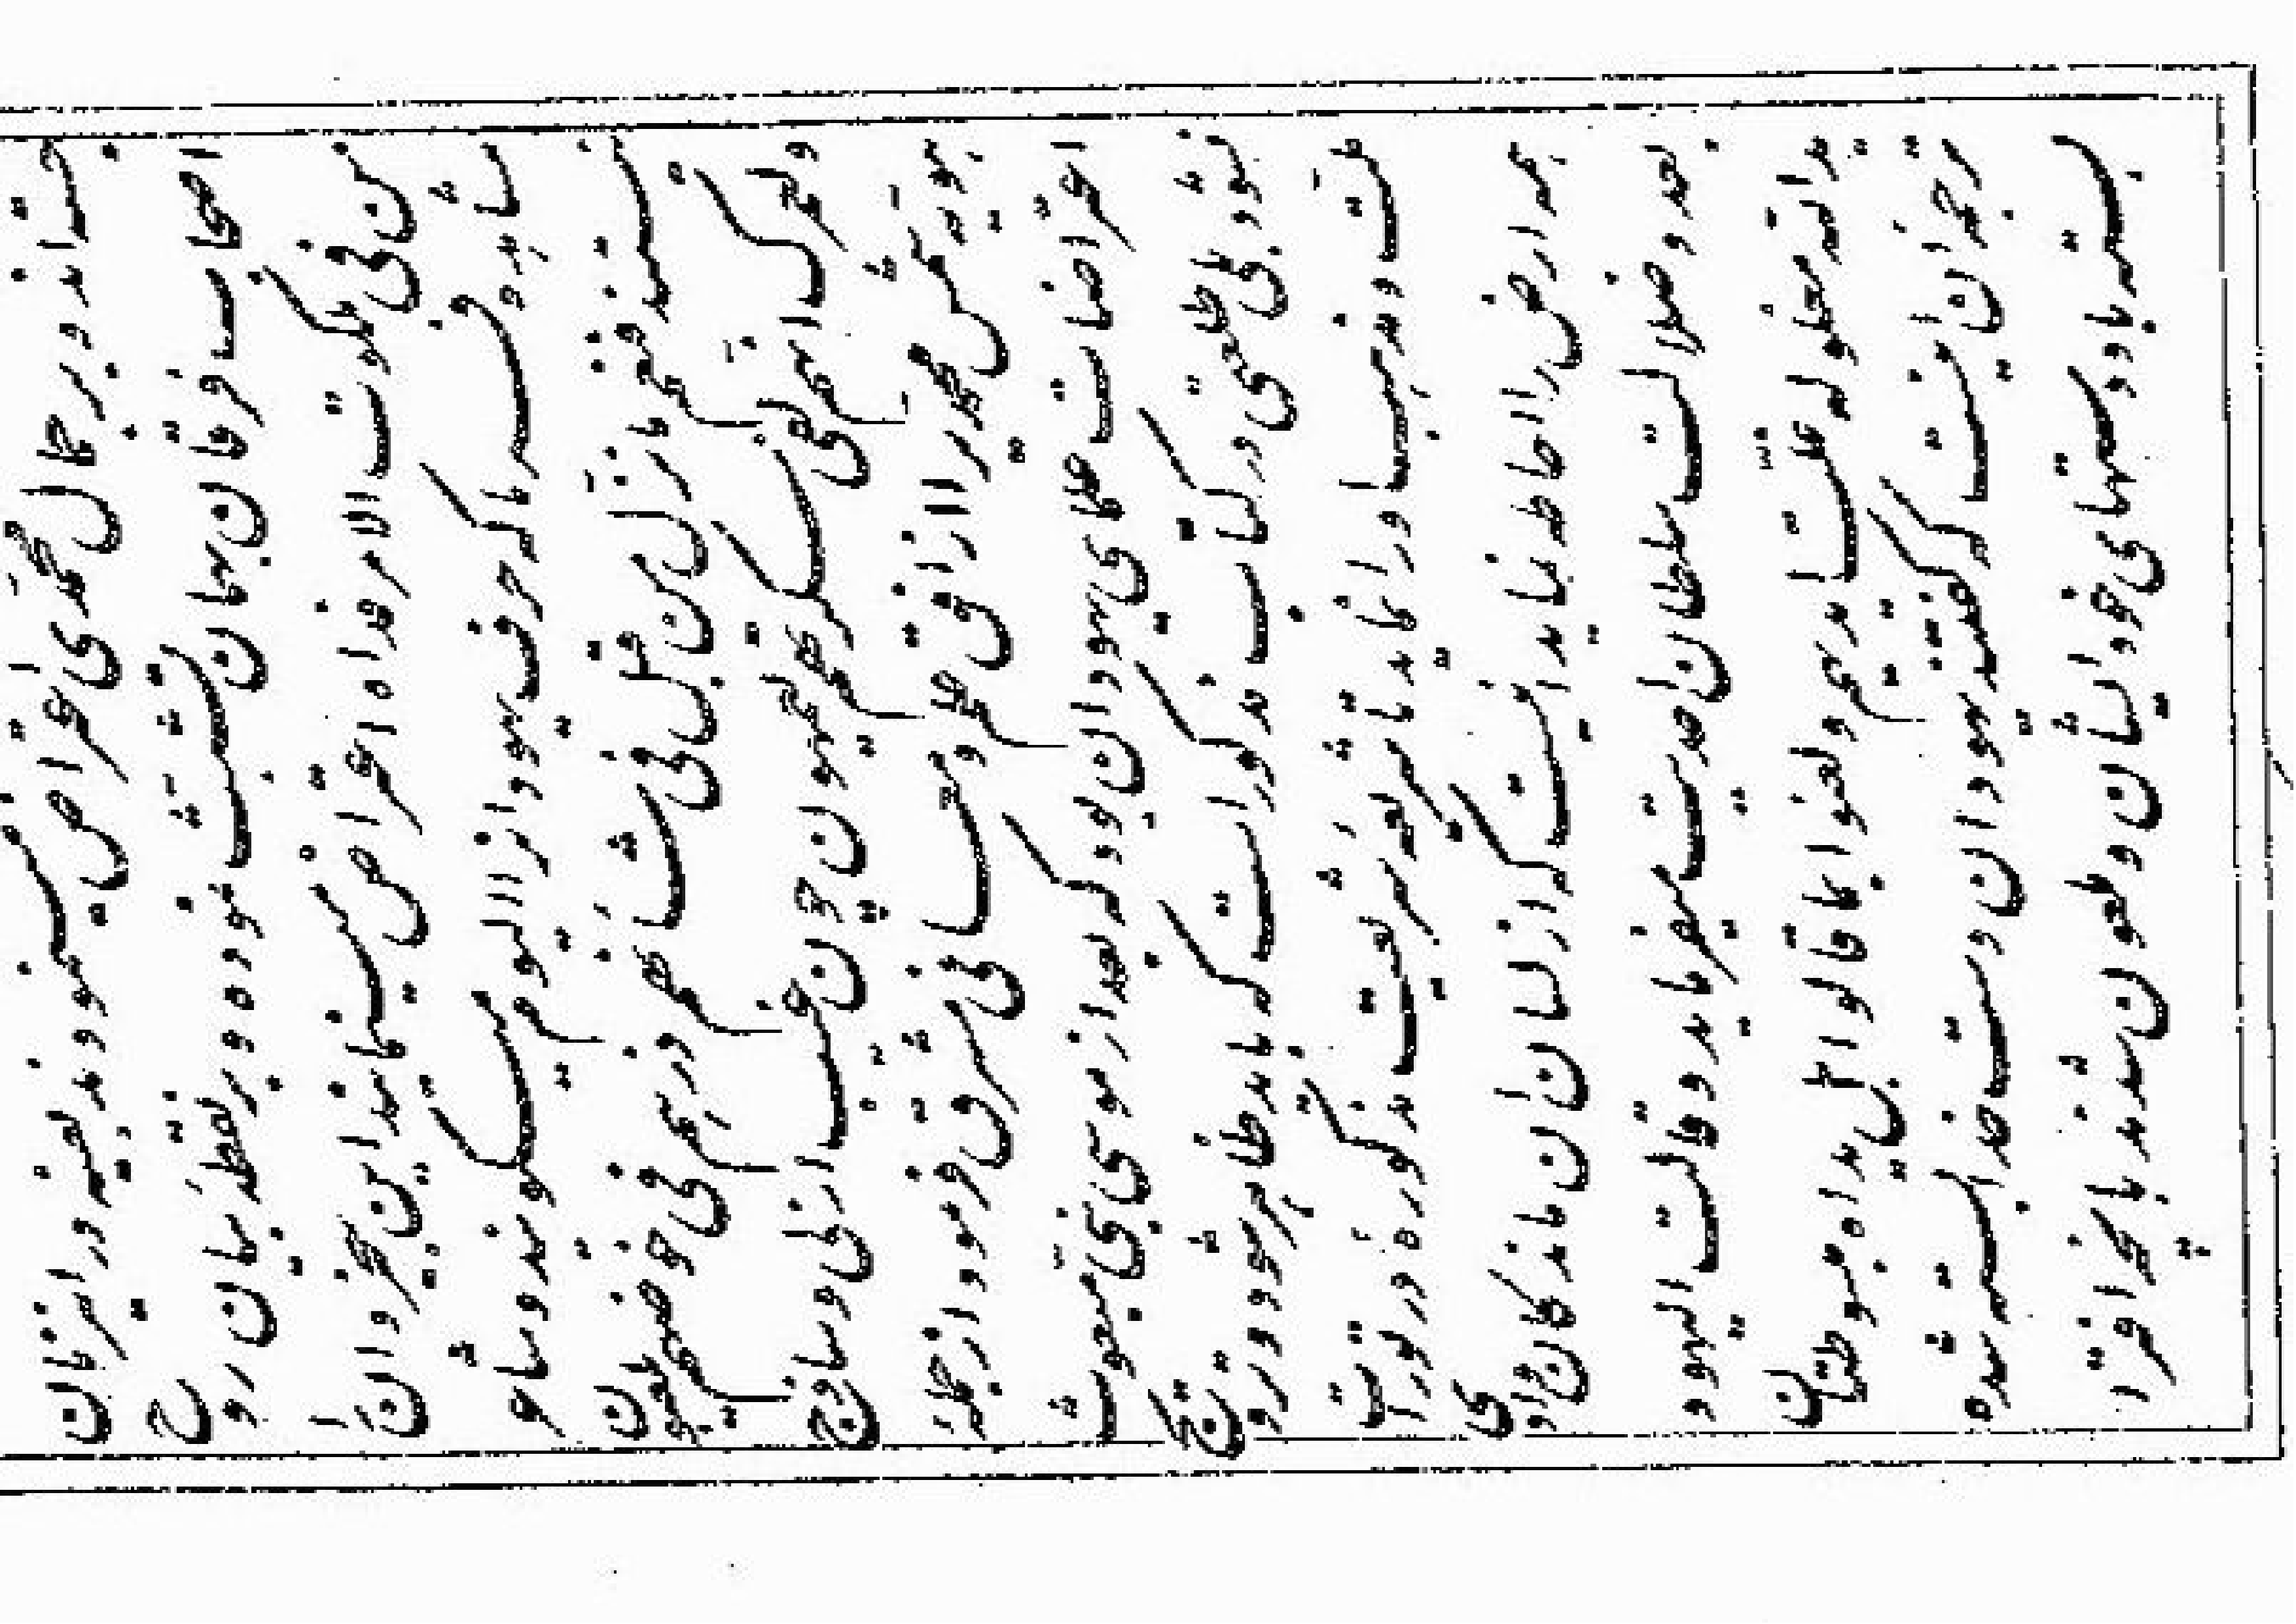 جستند و بر جمال محمّدی اعتراض می نمودند بعینه در این زمان
اصحاب فرقان بهمان قسم تشبّث نموده و در نقطهٔ بیان روح
من فی ملکوت الامر فداه اعتراض مینمایند این بیخردان را
مشاهده فرما که حرف یهود را الیوم میگویند و شاعر
نیستند فنعم ما نزّل من قبل فی شأنهم ذرهم فی خوضهم یلعبون
لعمرک یا محمّد انّهم لفی سکرتهم یعمهون چون غیب ازلی و ساذج
هویّه شمس محمّدی را از افق علم و معانی مشرق فرمود از جملهٔ
اعتراضات علمای یهود آن بود که بعد از موسی نبیّ مبعوث
نشود بلی طلعتی در کتاب مذکور است که باید ظاهر شود و ترویج
ملّت و مذهب او را نماید تا شریعهٔ شریعت مذکوره در تورات
همه ارض را احاطه نماید اینست که از لسان آن ماندگان وادی
بعد و ضلالت سلطان احدیّت میفرماید و قالت الیهود
ید الله مغلولة غلّت ایدیهم و لعنوا بما قالوا بل یداه مبسوطتان
ترجمهٔ آن اینست که گفتند یهودان دست خدا بسته شده
بسته باد دستهای خود ایشان و ملعون شدند بآنچه افترا